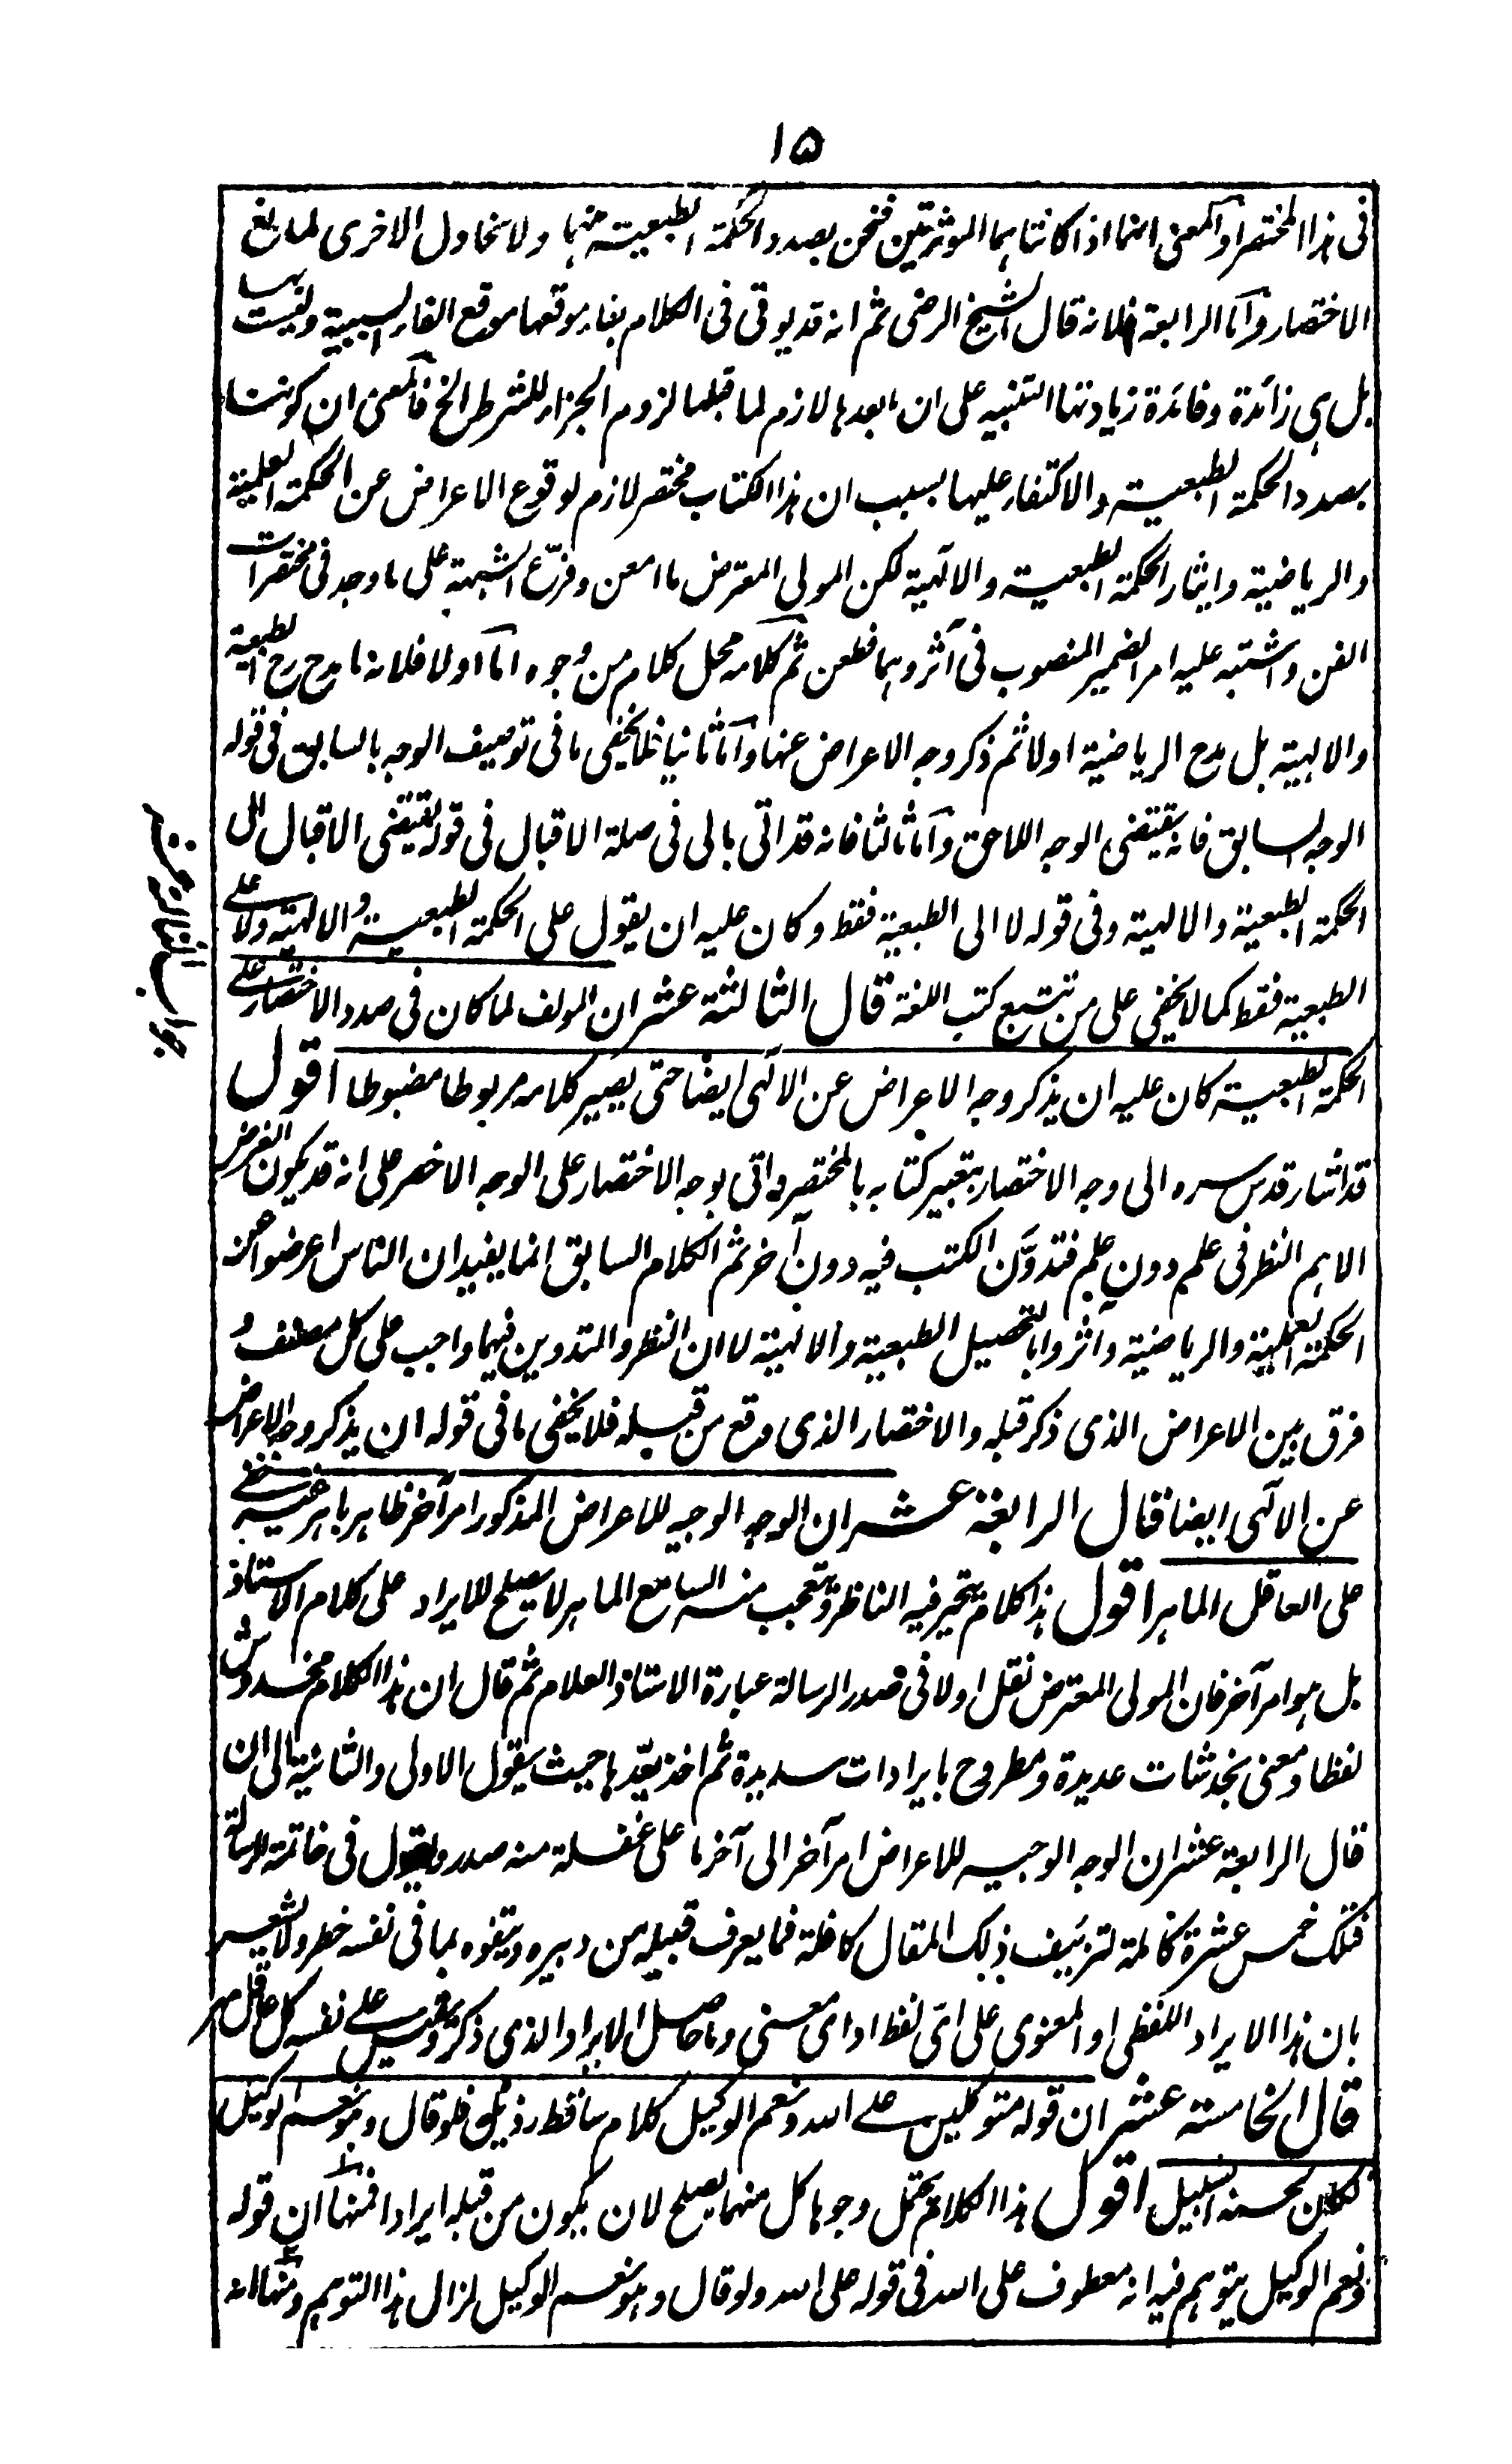 ١٥
فى هذا المختصر او المعنى انهما اذا كانتا هما الموثرتين فنحن بصدد الحكمة الطبعية منهما ولا نحاول الاخرى لمانع
الاختصار وآما الرابعة فلانه قال الشيخ الرضى ثم انه قد يوتى فى الكلام بفاء موقعها موقع الفاء السببية وليست بها
بل هى زائدة وفائدة زيادتها التنبيه على ان ما بعدها لازم لما قبلها لزوم الجزاء للشرط الخ فالمعنى ان كوننا
بصدد الحكمة الطبعية والاكتفاء عليها بسبب ان هذا الكتاب مختصر لازم لوقوع الاعراض عن الحكمة العملية
والرياضية وايثار الحكمة الطبعية والالٓهية لكن المولى المعترض ما امعن وفرّع الشبهة على ما وجد فى مختصرات
الفن واشتبه عليه امر الضمير المنصوب فى آثروهما فطعن ثم كلامه محل كلام من وجوه امّا اولا فلانه ما مدح رح الطبعية
والالهية بل مدح الرياضية اولا ثم ذكر وجه الاعراض عنها وآما ثانيا فلما يخفى ما فى توصيف الوجه بالسابق فى قوله
الوجه السابق فانه يقتضى الوجه اللاحق وآما ثالثا فانه قد اتى بالى فى صلة الاقبال فى قوله يقتضى الاقبال الى
الحكمة الطبعية والالهية وفى قوله لا الى الطبعية فقط وكان عليه ان يقول على الحكمة الطبعية والالهية ولا على
الطبعية فقط كما لا يخفى على من تتبع كتب اللغة قال الثالثة عشر ان المولف لما كان فى صدد الاختصار على
الحكمة الطبعية كان عليه ان يذكر وجه الاعراض عن الالٓهى ايضا حتى يصير كلامه مربوطا مضبوطا اقول
قد اشار قدس سره الى وجه الاختصار بتعبير كتابه بالمختصر واتى بوجه الاختصار على الوجه الاخصر على انه قد يكون الغرض
الاهم النظر فى علم دون علم فتدوَّن الكتب فيه دون آخر ثم الكلام السابق انما يفيد ان الناس اعرضوا عن
الحكمة العملية والرياضية وآثروا بالتحصيل الطبعية والالهية لا ان النظر والتدوين فيهما واجب على كل مصنف و
فرق بين الاعراض الذى ذكر قبله والاختصار الذى وقع من قبله فلا يخفى ما فى قوله ان يذكر وجه الاعراض
عن الالٓهى ايضا قال الرابعة عشر ان الوجه الوجيه للاعراض المذكور امر آخر ظاهر باهر غير مخفى
على العاقل الماهر اقول هذا كلام يتحير فيه الناظر ويتعجب منه السامع الماهر لا يصلح للايراد على كلام الاستاذ
بل هو امر آخر فان المولى المعترض نقل اولا فى صدر الرسالة عبارة الاستاذ العلام ثم قال ان هذا الكلام مخدوش
لفظا ومعنى بخدشات عديدة ومطروح بايرادات سديدة ثم اخذ يعدّها حيث يقول الاولى والثانية الى ان
قال الرابعة عشر ان الوجه الوجيه للاعراض امر آخر الى آخر ما على غفلة منه صدر ويقول فى خاتمة الرسالة
فتلك خمس عشرة كاملة لتزئيف ذلك المقال كافلة فما يعرف قبيله من دبيره ويتفوه بما فى نفسه خطر ولا يشعر
بان هذا الايراد اللفظى او المعنوى على اىّ لفظ او اى معنى وما حاصل الايراد الذى ذكره وقيس على نفسه كل عاقل مهر
قال الخامسة عشر ان قوله متوكلين على الله ونعم الوكيل كلام ساقط رذيل فلو قال وهو نعم الوكيل
لكان لحسنه السبيل اقول هذا الكلام يحتمل وجوها كل منهما يصلح لان يكون من قبله ايرادا فمنها ان قوله
ونعم الوكيل يتوهم فيه انه معطوف على الله فى قوله على الله ولو قال وهو نعم الوكيل لزال هذا التوهم ومنها انه